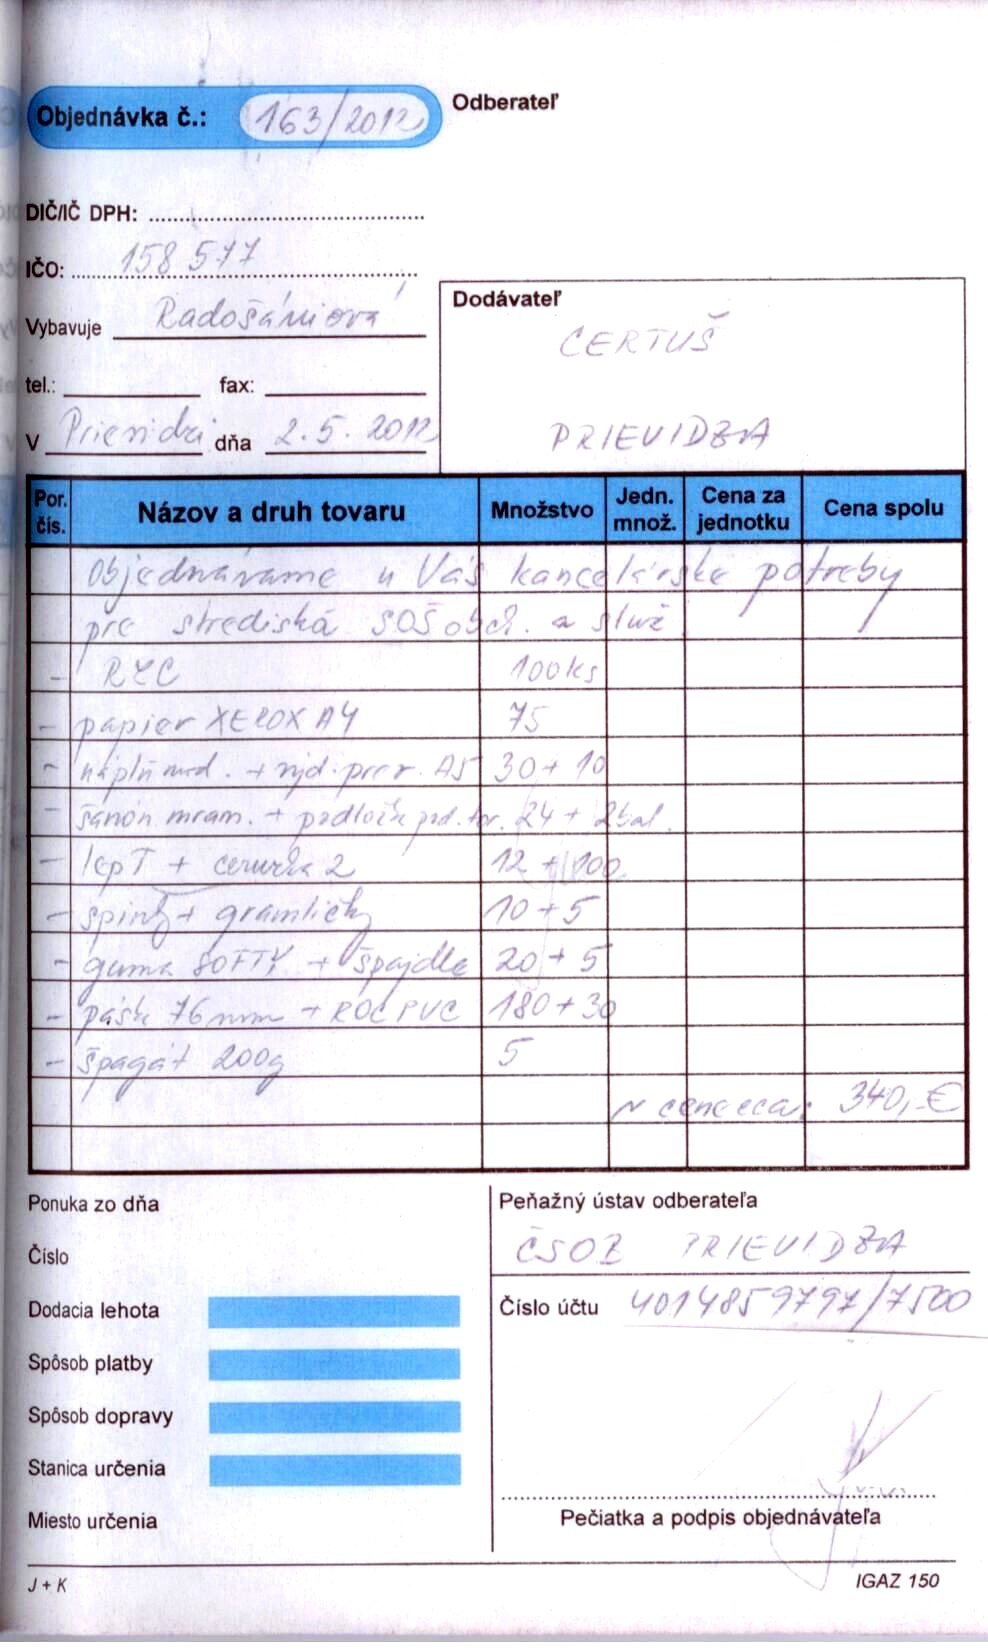 Objednávka č.: 163/2012
Odberateľ
DIČ/IČ DPH:
IČO: 158 577
Vybavuje Radošániová
tel.: fax:
V Prievidzi dňa 2.5.2012
Dodávateľ
CERTUŠ
PRIEVIDZA
Por. čís. Názov a druh tovaru Množstvo Jedn. množ. Cena za jednotku Cena spolu
Objednávame u Vás kancelárske potreby
pre strediská SOŠ obch. a služ
- RZC 100ks
- papier XEROX A4 75
- náplň + A5 30+10
- šanón mram. + podložk 24 + 2bal.
- lepT + ceruzka 2 12 + 100
- spinky + gramličky 10 + 5
- guma SOFTY + špajdle 20 + 5
- páska 76mm + ROC PVC 180 + 30
- špagát 200g 5
v cene cca: 340,-€
Ponuka zo dňa
Číslo
Dodacia lehota
Spôsob platby
Spôsob dopravy
Stanica určenia
Miesto určenia
Peňažný ústav odberateľa
ČSOB PRIEVIDZA
Číslo účtu 4014859797/7500
Pečiatka a podpis objednávateľa
J + K
IGAZ 150